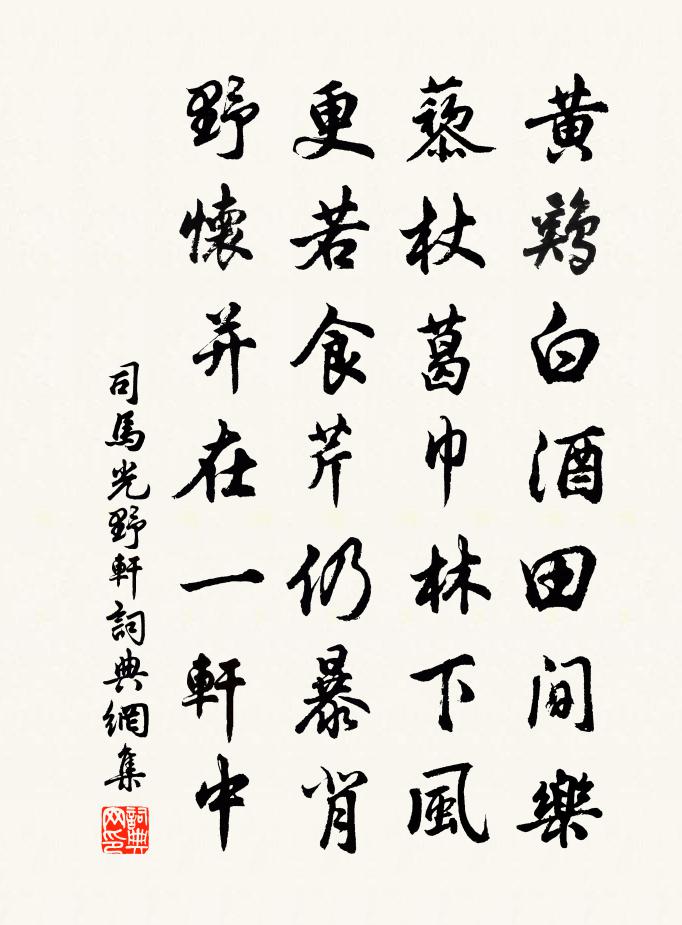 黄鷄白酒田間樂
藜杖葛巾林下風
更若食芹仍暴背
野懷并在一軒中
司馬光野軒詞典網集
詞典网印